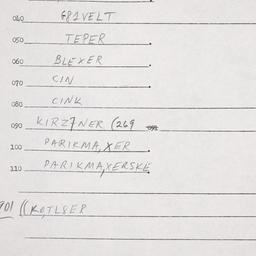 040 GP2VELT
050 TEPER
060 BLEXER
070 CIN
080 CINK
090 KIRZ7NER (269
100 PARIKMA,XER
110 PARIKMA,XERSKE
701 ((KOTLSER